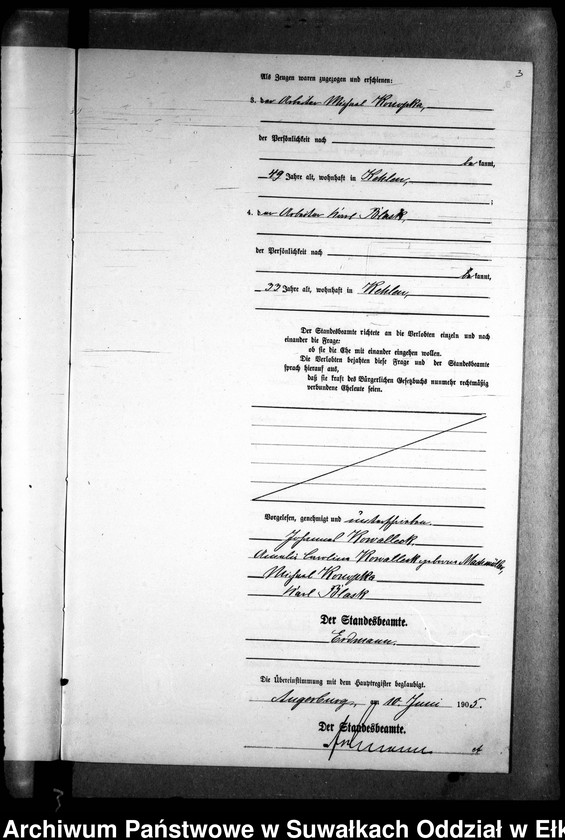 3
Als Zeugen waren zugezogen und erschienen:
3. der Arbeiter Michael Konopka,
der Persönlichkeit nach
bekannt,
49 Jahre alt, wohnhaft in Kehlen,
;
4. der Arbeiter Karl Blask,
der Persönlichkeit nach
bekannt,
33 Jahre alt, wohnhaft in Kehlen,
Der Standesbeamte richtete an die Verlobten einzeln und nach
einander die Frage:
ob sie die Ehe mit einander eingehen wollen.
Die Verlobten bejahten diese Frage und der Standesbeamte
sprach hierauf aus,
daß sie kraft des Bürgerlichen Gesetzbuchs nunmehr rechtmäßig
verbundene Eheleute seien.
Vorgelesen, genehmigt und unterschrieben.
Johannes Kowalleck.
Amalie Carolina Kowalleck geborene
Michael Konopka
Karl Blask
Der Standesbeamte.
Erdmann.
Die Übereinstimmung mit dem Hauptregister beglaubigt.
Angerburg, 10. Juni 1905.
Der Standesbeamte.
Erdmann
3
Archiwum Państwowe w Suwałkach Oddział w Ełk